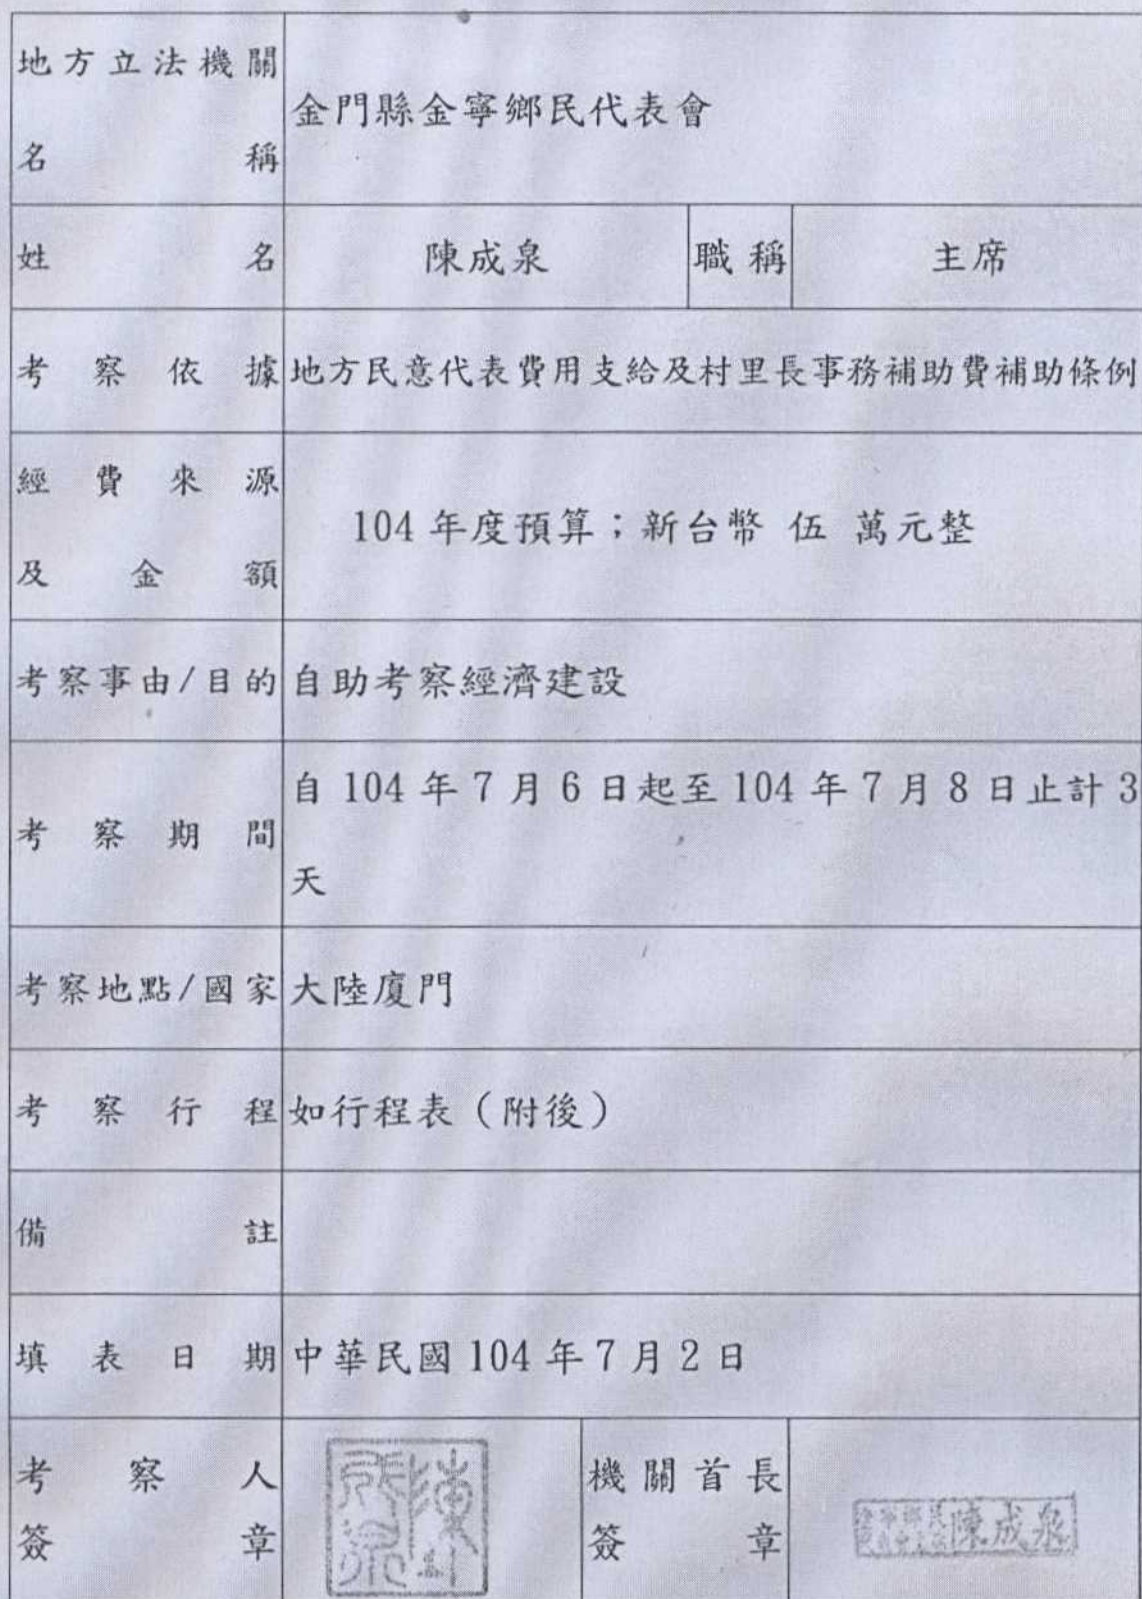 地方立法機關
名稱
金門縣金寧鄉民代表會
姓名 陳成泉 職稱 主席
考察依據 地方民意代表費用支給及村里長事務補助費補助條例
經費來源
及金額
104 年度預算；新台幣 伍 萬元整
考察事由/目的 自助考察經濟建設
考察期間
自 104 年 7 月 6 日起至 104 年 7 月 8 日止計 3
天
考察地點/國家 大陸廈門
考察行程 如行程表（附後）
備註
填表日期 中華民國 104 年 7 月 2 日
考察人
簽章
機關首長
簽章
陳成泉